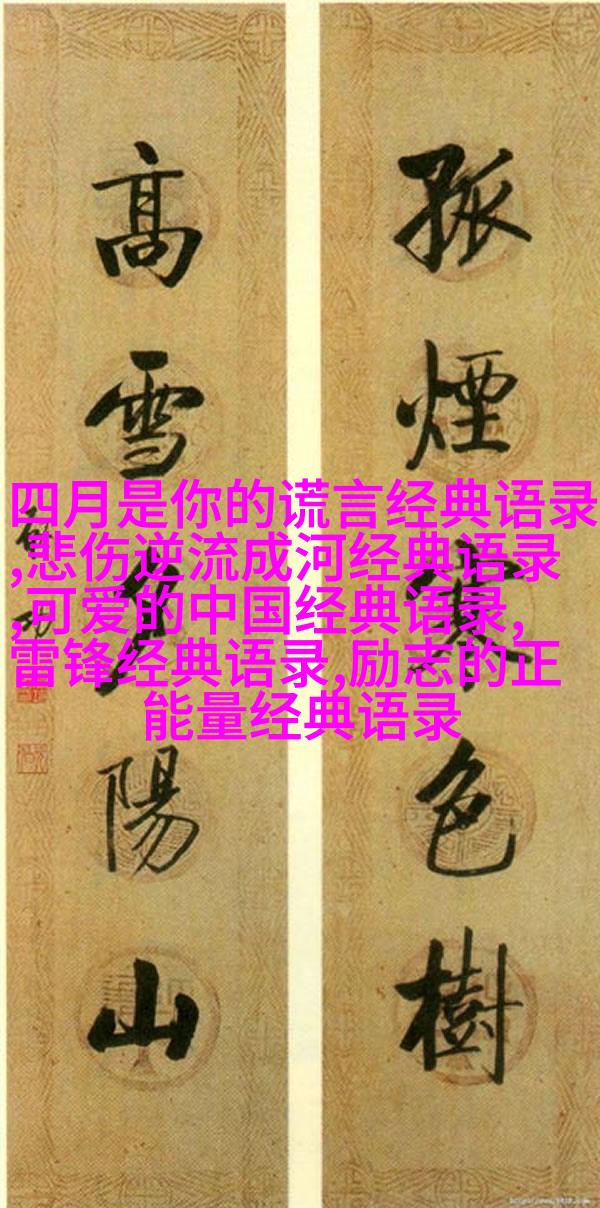 孤煙寒色樹
高雪夕陽山
四月是你的谎言经典语录
,悲伤逆流成河经典语录
,可爱的中国经典语录,
雷锋经典语录,励志的正
能量经典语录